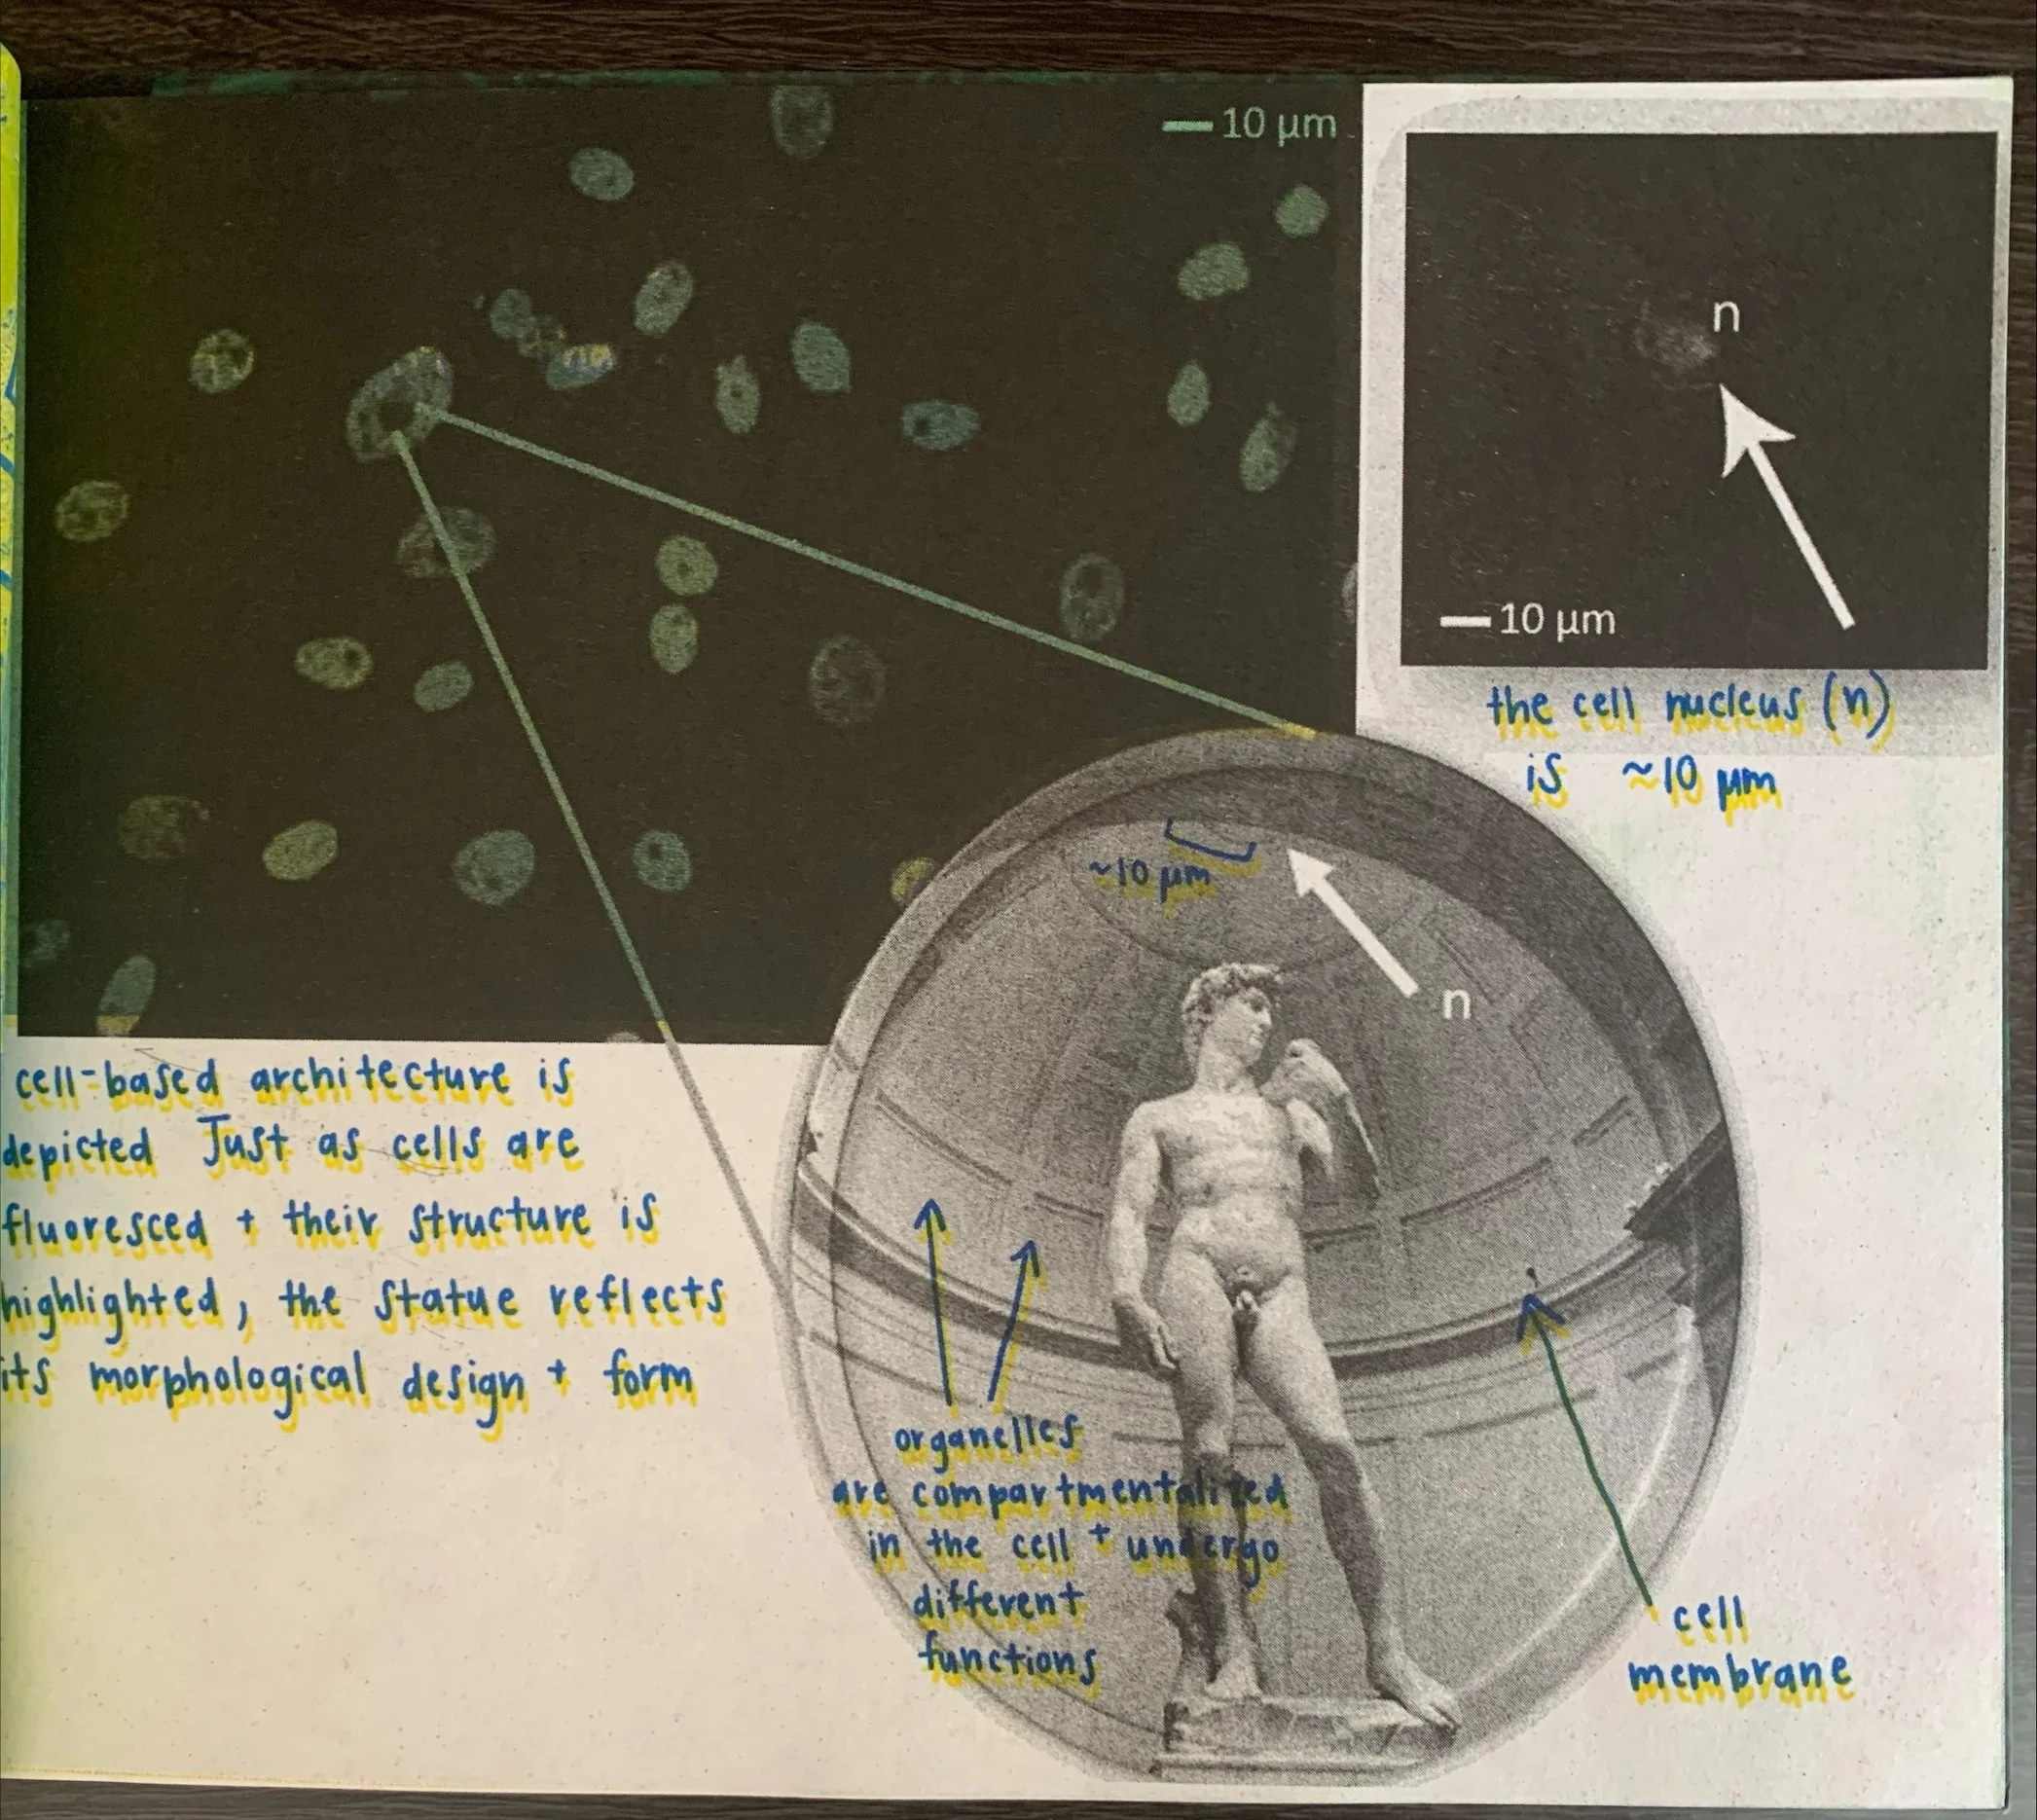 10 μm
n
10 μm
the cell nucleus (n)
is ~10 μm
~10 μm
n
cell-based architecture is
depicted Just as cells are
fluoresced + their structure is
highlighted, the statue reflects
its morphological design + form
organelles
are compartmentalized
in the cell + undergo
different
functions
cell
membrane